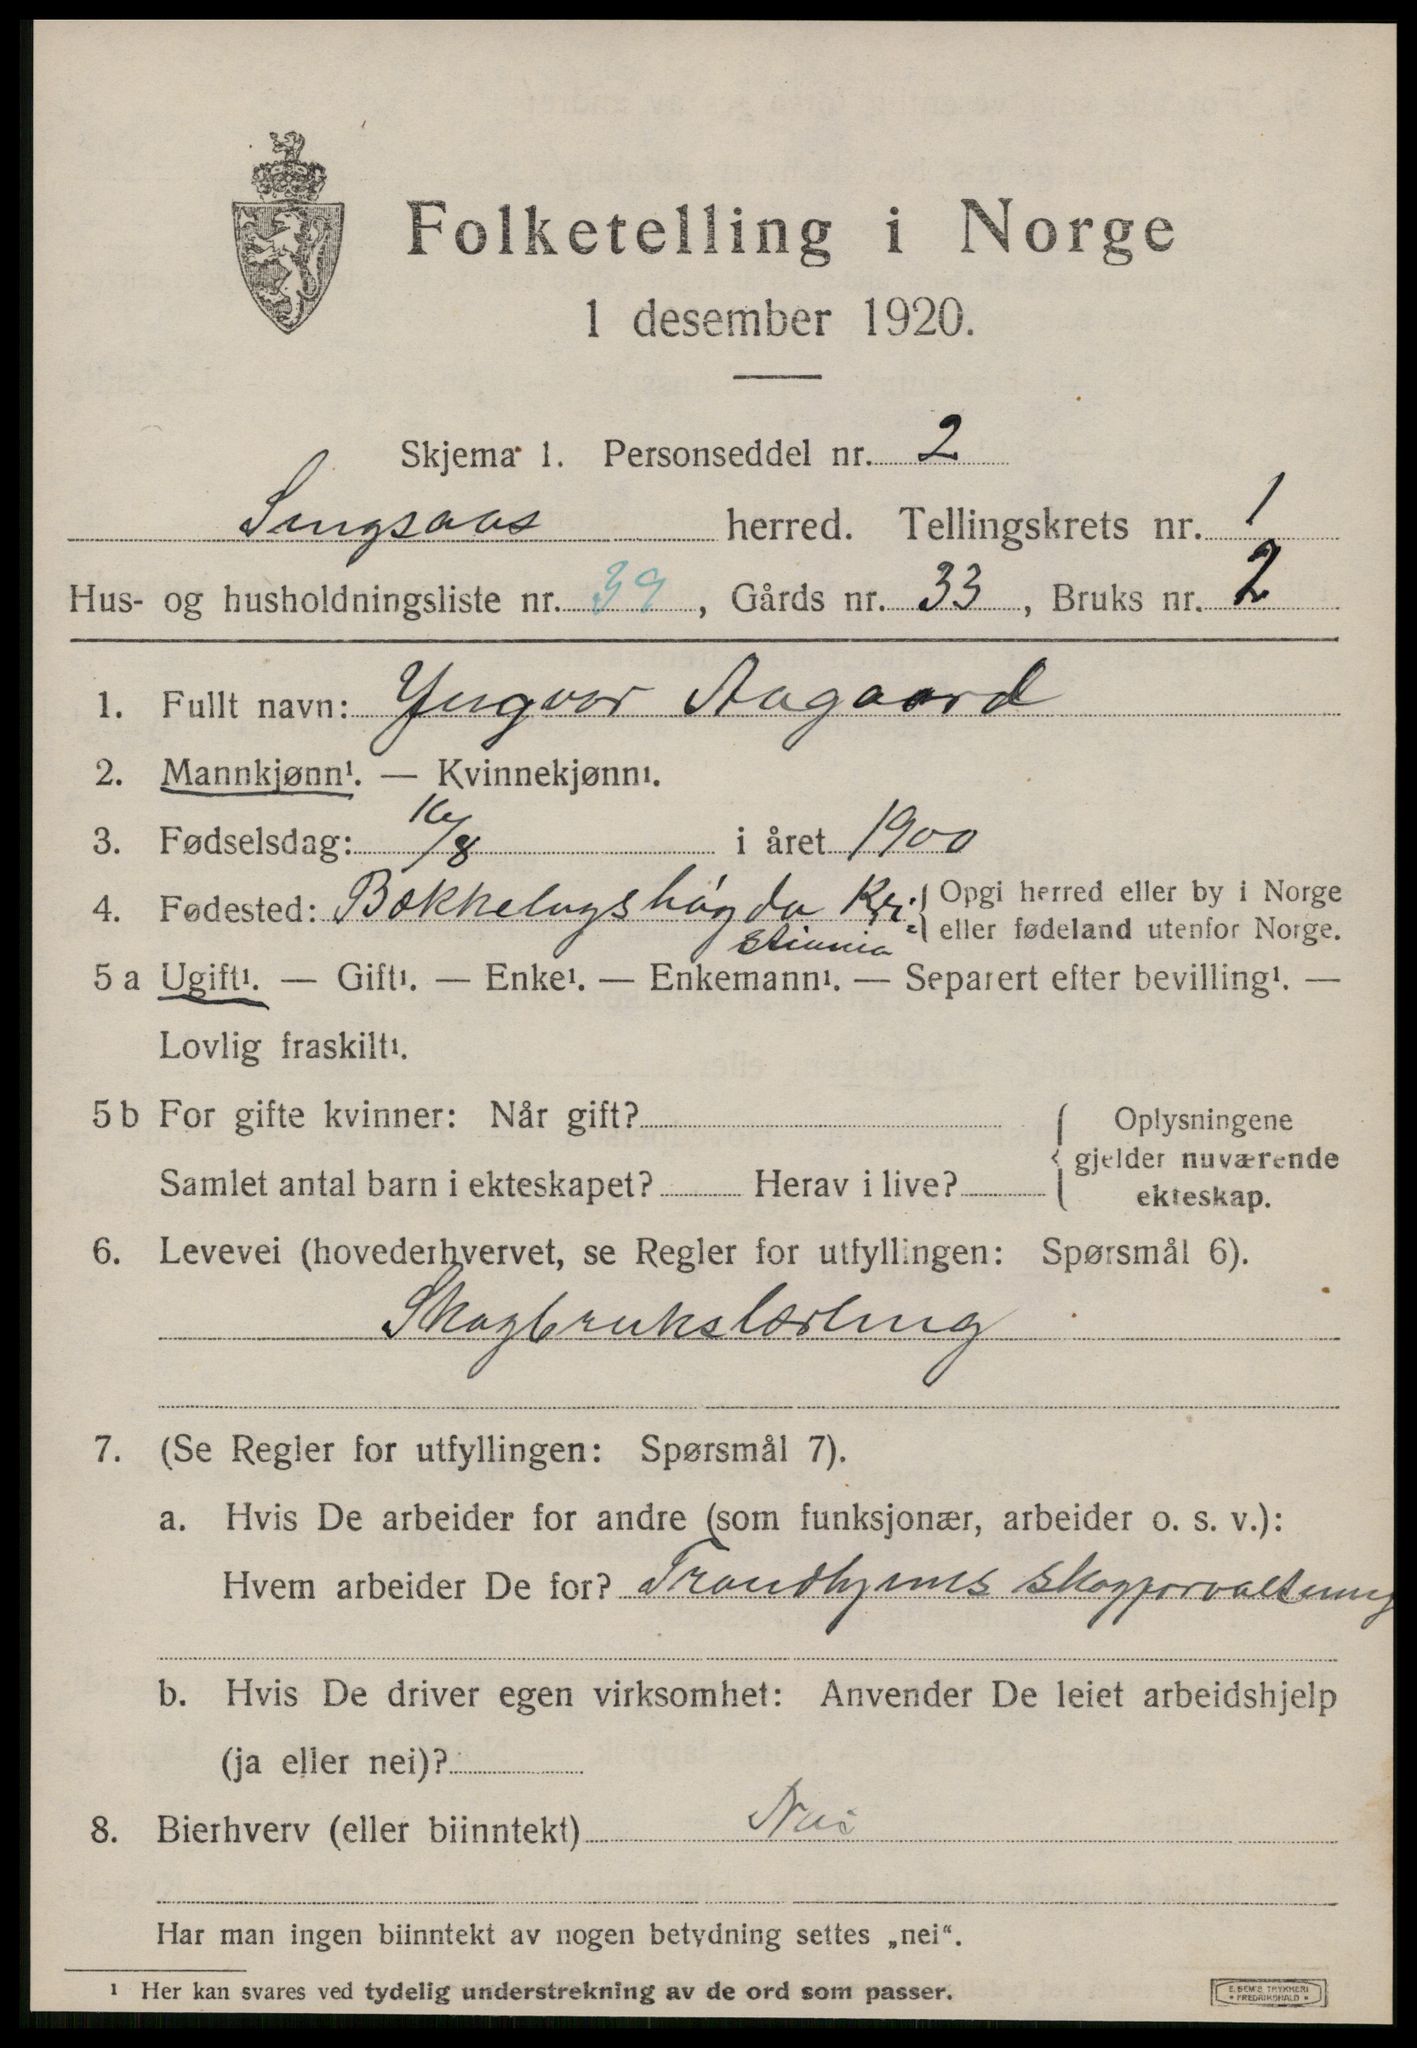 Folketelling i Norge
1 desember 1920.
Skjema 1. Personseddel nr. 2
Singsaas herred. Tellingskrets nr. 1
Hus- og husholdningsliste nr. 39, Gårds nr. 33, Bruks nr. 2
1. Fullt navn: Yngvar Aagaard
2. Mannkjønn¹. — Kvinnekjønn¹.
3. Fødselsdag: 16/8 i året 1900
4. Fødested: Bækkelagshøgda Kri= { Opgi herred eller by i Norge
stiania eller fødeland utenfor Norge.
5 a Ugift¹. — Gift¹. — Enke¹. — Enkemann¹. — Separert efter bevilling¹. —
Lovlig fraskilt¹.
5 b For gifte kvinner: Når gift? { Oplysningene
gjelder nuværende
Samlet antal barn i ekteskapet? Herav i live? ekteskap.
6. Levevei (hovederhvervet, se Regler for utfyllingen: Spørsmål 6).
Skogbrukslærling
7. (Se Regler for utfyllingen: Spørsmål 7).
a. Hvis De arbeider for andre (som funksjonær, arbeider o. s. v.):
Hvem arbeider De for? Trondhjems skogforvaltning
b. Hvis De driver egen virksomhet: Anvender De leiet arbeidshjelp
(ja eller nei)?
8. Bierhverv (eller biinntekt) Nei
Har man ingen biinntekt av nogen betydning settes „nei“.
¹ Her kan svares ved tydelig understrekning av de ord som passer.
E. SEM'S TRYKKERI
* FREDRIKSHALD *